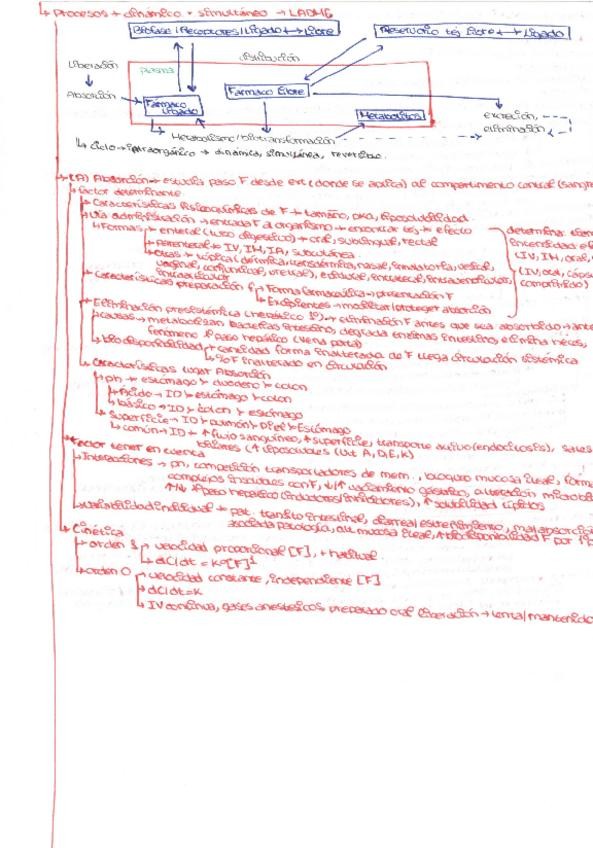 ↳ Procesos → dinámico + simultáneo → LADME
Biofase/Receptores/Ligado ↔ Libre
Reservorio tej. Libre ↔ Ligado
distribución
Liberación
plasma
Absorción
Fármaco Ligado
Fármaco libre
Metabolitos
excreción,
eliminación
Metabolismo/biotransformación
↳ Ciclo → intraorgánico → dinámica, simultánea, reversible.
(A) Absorción → estudia paso F desde ext (donde se aplica) al compartimento central (sangre
Factor determinante
Características fisicoquímicas de F → tamaño, pKa, liposolubilidad
Vía administración → entrada F a organismo → encontrar tej → efecto
Formas → enteral (tubo digestivo) → oral, sublingual, rectal
parenteral → IV, IM, IA, subcutánea
otras → tópica (dérmica, transdérmica, nasal, inhalatoria, vesical,
vaginal, conjuntival, uretral), epidural, intratecal, intraventricular,
determina:
intensidad e
(IV, IM, oral,
(IV, oral, cáps
comprimido)
Características preparación f → Forma farmacéutica → presentación F
Excipientes → modificar/proteger absorción
Eliminación presistémica (hepático 1º) → eliminación F antes que sea absorbido → ante
causas → metabolizan bacterias intestino, degrada enzimas intestino, elimina heces,
fenómeno 1º paso hepático (vena porta)
biodisponibilidad → cantidad forma inalterada de F llega circulación sistémica
% F inalterado en circulación
Características lugar Absorción
pH → estómago > duodeno > colon
Ácido → ID > estómago > colon
básico → ID > colon > estómago
superficie → ID > pulmón > piel > Estómago
común → ID → ↑ flujo sanguíneo, ↑ superficie, transporte activo (endocitosis), sales
biliares (↑ liposolubles (Vit A, D, E, K)
Factor tener en cuenta
Interacciones → pH, competición transportadores de mem., bloqueo mucosa ileal, forma
complejos insolubles con F, ↓/↑ vaciamiento gástrico, alteración microbi
↑/↓ 1º paso hepático (inductores/inhibidores), ↑ solubilidad lípidos
Variabilidad individual → pat. tránsito intestinal, diarrea/estreñimiento, malabsorción
asociada patología, alt. mucosa ileal, ↑ biodisponibilidad F por 1º p
Cinética
orden 1 → velocidad proporcional [F], + habitual
dC/dt = K·[F]¹
orden 0 → velocidad constante, independiente [F]
dC/dt = K
IV continua, gases anestésicos, preparado oral liberación → lenta/mantenida